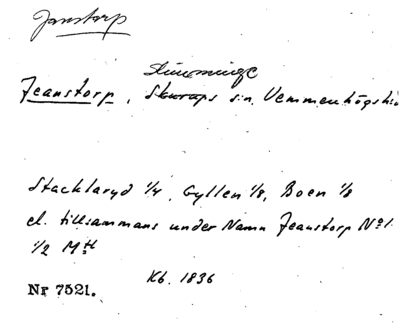 Janstorp
Slimminge
Jeanstorp, Skurups s:n, Vemmenhögshä
Stacklaryd 1/4, Gyllen 1/8, Boen 1/8
el. tillsammans under Namn Jeanstorp No 1.
1/2 Mtl
Kb. 1836
Nr 7521.